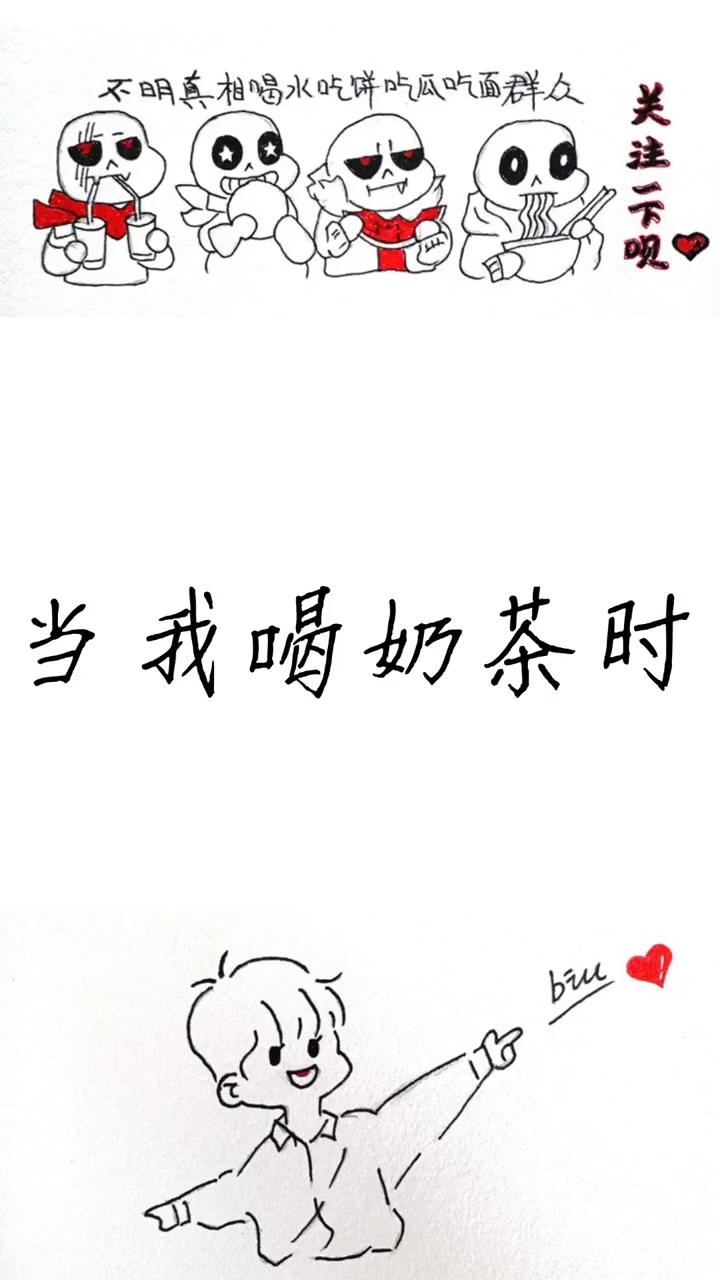 不明真相喝水吃饼吃瓜吃面群众
关注一下呗
当我喝奶茶时
biu